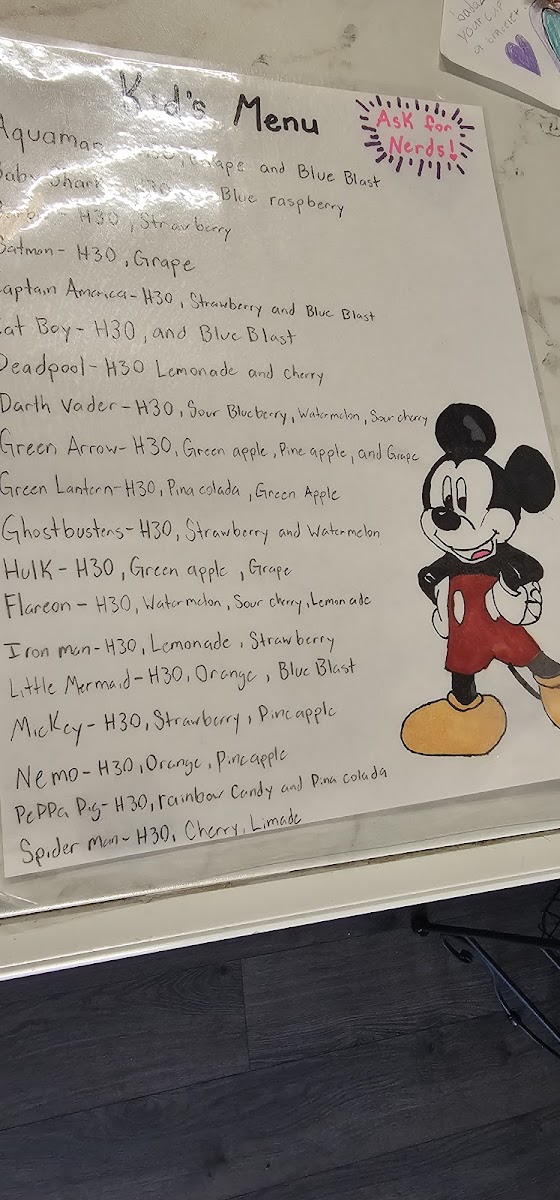 Kid's Menu
Ask for
Nerds!
Aquaman Grape and Blue Blast
Baby Shark H30 Blue raspberry
H30, Strawberry
Batman- H30, Grape
aptain America- H30, Strawberry and Blue Blast
Cat Boy- H30, and Blue Blast
Deadpool- H30 Lemonade and cherry
Darth Vader- H30, Sour Blueberry, Watermelon, Sour cherry
Green Arrow- H30, Green apple, Pine apple, and Grape
Green Lantern- H30, Pina colada, Green Apple
Ghostbusters- H30, Strawberry and Watermelon
Hulk - H30, Green apple, Grape
Flareon - H30, Watermelon, Sour cherry, Lemonade
Iron man- H30, Lemonade, Strawberry
Little Mermaid- H30, Orange, Blue Blast
Mickey- H30, Strawberry, Pineapple
Nemo- H30, Orange, Pineapple
PePPa Pig- H30, rainbow Candy and Pina colada
Spider man- H30, Cherry, Limade
your cup
a bracelet